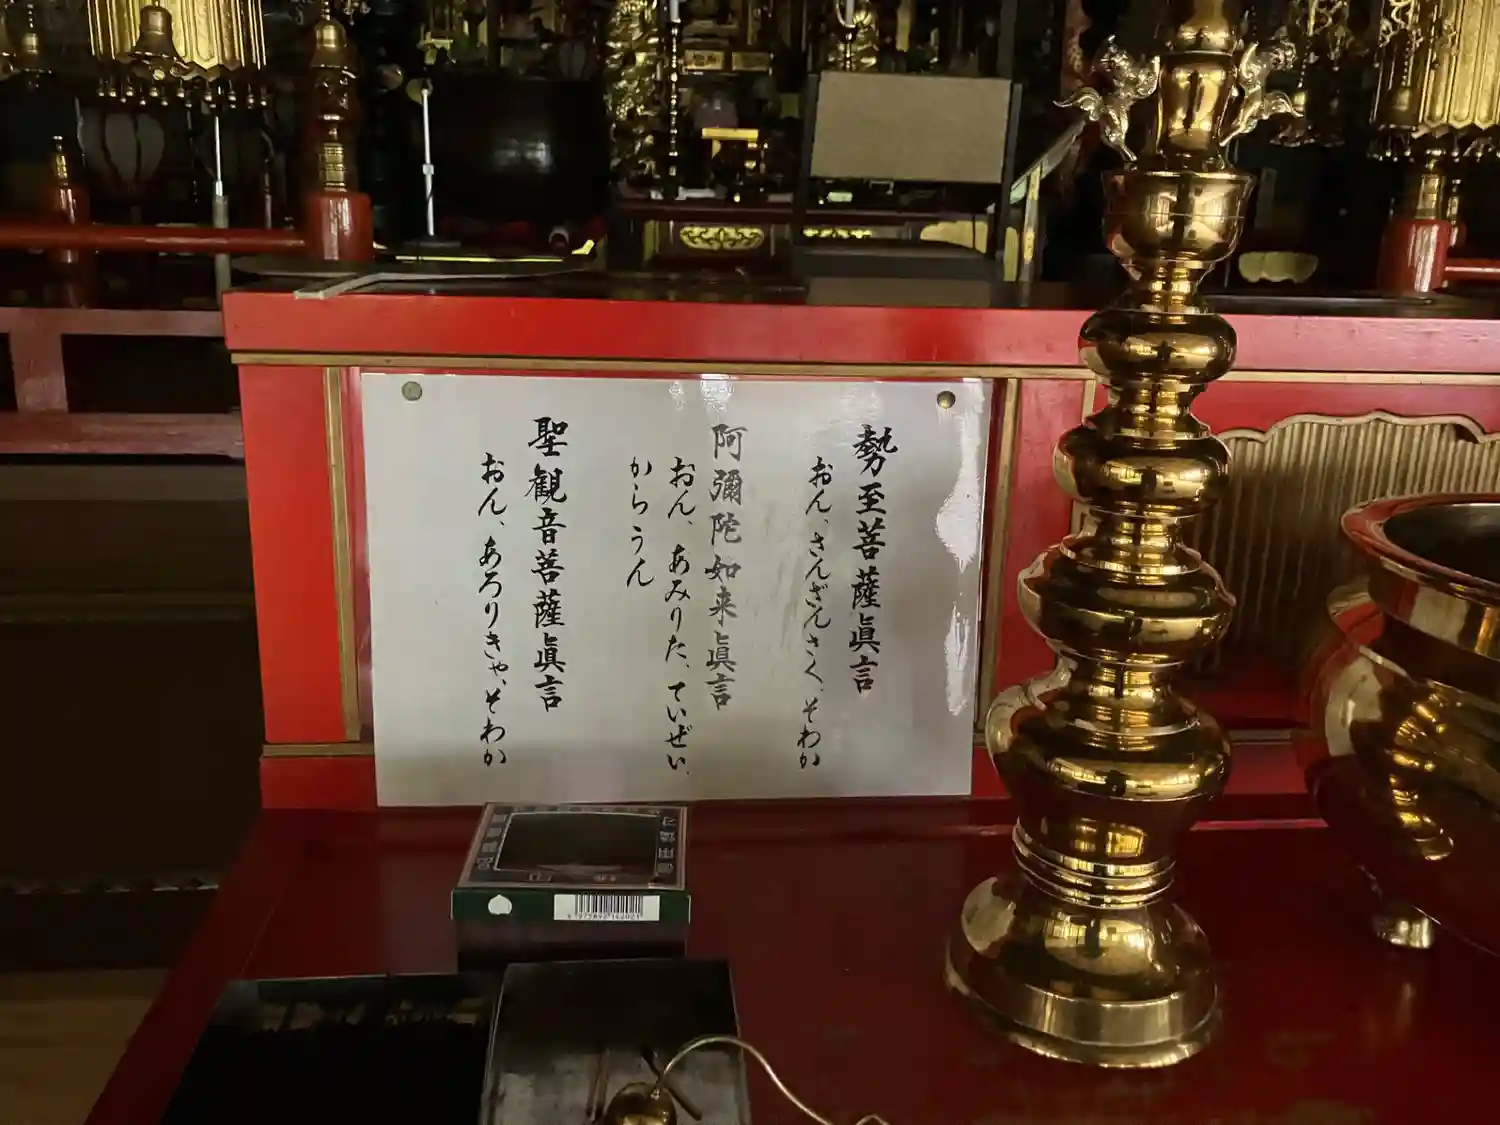 勢至菩薩眞言
おん、さんざんさく、そわか
阿彌陀如来眞言
おん、あみりた、ていぜい、
からうん
聖観音菩薩眞言
おん、あろりきゃ、そわか